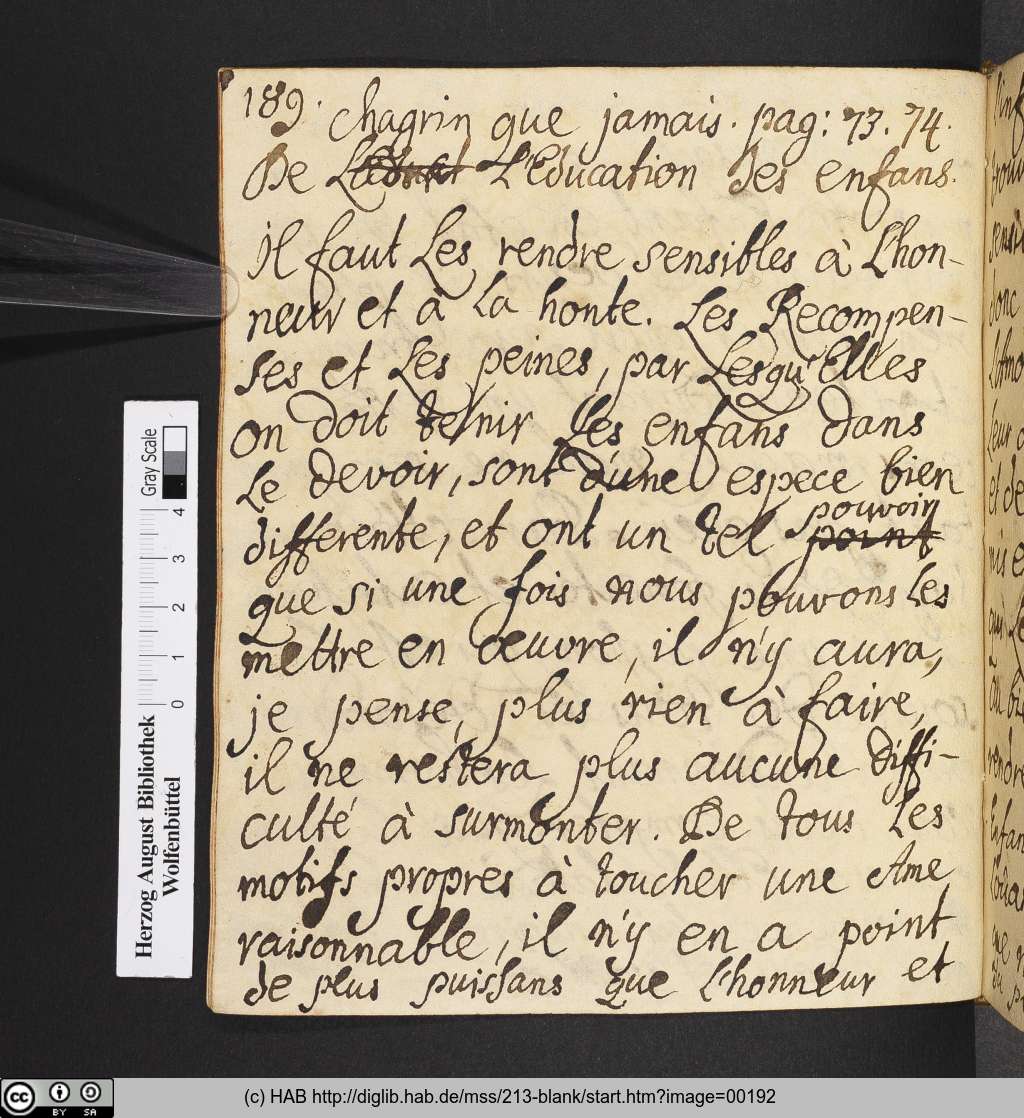 189.
chagrin que jamais. pag: 73. 74.
De L'Education des enfans.
il faut Les rendre sensibles à L'hon-
neur et à La honte. Les Recompen-
ses et Les peines, par Lesqu'Elles
on doit tenir Les enfans dans
Le devoir, sont d'une espece bien
differente, et ont un tel pouvoir
point
que si une fois nous pouvons Les
mettre en œuvre, il n'y aura,
je pense, plus rien à faire,
il ne restera plus aucune diffi-
culté à surmonter. De tous Les
motifs propres à toucher une Ame
raisonnable, il n'y en a point
de plus puissans que L'honneur et
Gray Scale
4 3 2 1 0
Herzog August Bibliothek
Wolfenbüttel
cc BY SA
(c) HAB http://diglib.hab.de/mss/213-blank/start.htm?image=00192